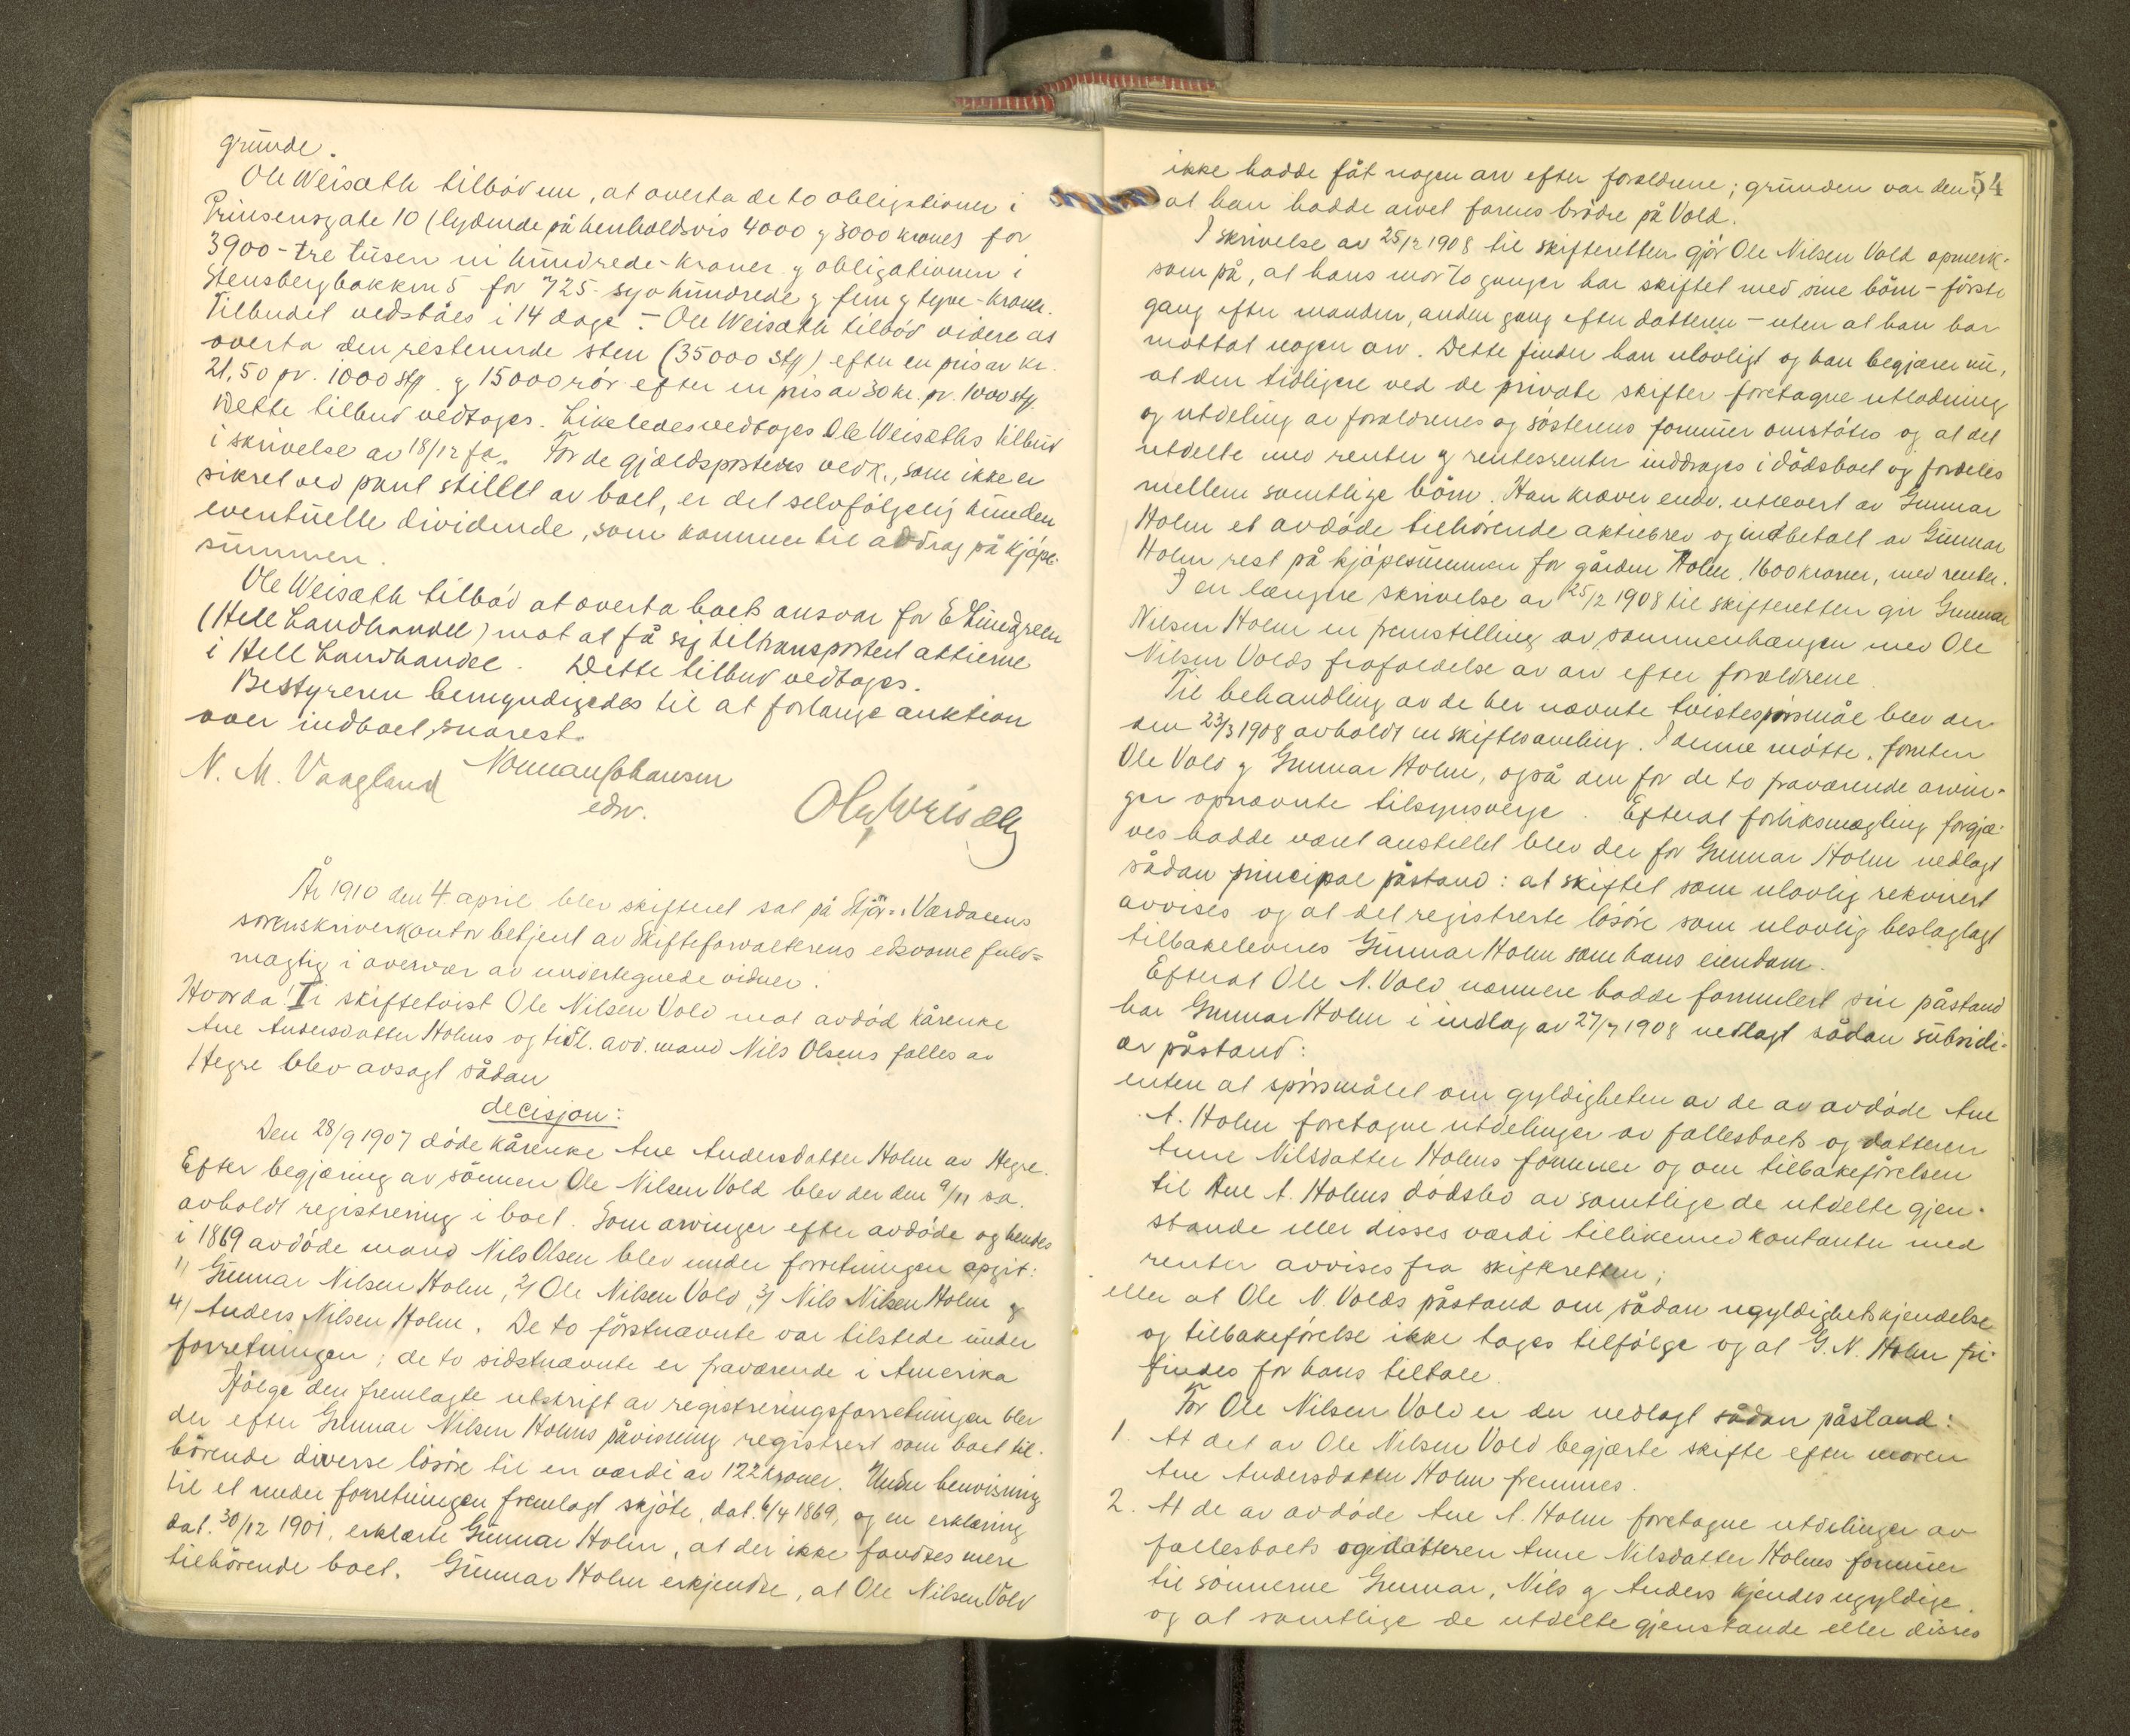 grunde.
Ole Weisæth tilbød nu, at overta de to obligationer i
Prinsensgate 10 (lydende på henholdsvis 4000 g 3000 kroner) for
3900 - tre tusen ni hundrede - kroner g obligationen i
Stensbergbakken 5 for 725 - syv hundrede g fem g tyve - kroner.
Tilbudet vedståes i 14 dage. - Ole Weisæth tilbød videre at
overta den resterende sten (35000 stk) efter en pris av kr.
21,50 pr. 1000 stk. g 15000 rør efter en pris av 30 kr. pr. 1000 stk.
Dette tilbud vedtages. Likeledes vedtages Ole Weisæths tilbud
i skrivelse av 18/12 f.a. For de gjældsposters vedk., som ikke er
sikret ved pant stillet av boet, er det selvfølgelig kun den
eventuelle dividende, som kommer til addrag på kjøpe-
summen.
Ole Weisæth tilbød at overta boets ansvar for E Lundgreen
(Hell Landhandel) mot at få sig tiltransportert aktierne
i Hell Landhandel. Dette tilbud vedtages.
Bestyreren bemyndigedes til at forlange auktion
over indboet snarest.
N. M. Vaagland Norman Johansen
edsv.
Ole Weisæth
År 1910 den 4. april blev skifteret sat på Stjør- Værdalens
sorenskriverkontor betjent av Skifteforvalterens edsvorne fuld=
mægtig i overvær av undertegnede vidner.
Hvorda: I i skiftetvist Ole Nilsen Vold mot avdød kårenke
Ane Andersdatter Holms og tidl. avd. mand Nils Olsens fælles av
Hegre blev avsagt sådan
decisjon:
Den 28/9 1907 døde kårenke Ane Andersdatter Holm av Hegre.
Efter begjæring av sønnen Ole Nilsen Vold blev der den 9/11 s.a.
avholdt registrering i boet. Som arvinger efter avdøde og hendes
i 1869 avdøde mand Nils Olsen blev under forretningen opgit:
1) Gunnar Nilsen Holm, 2) Ole Nilsen Vold, 3) Nils Nilsen Holm g
4) Anders Nilsen Holm. De to førstnævnte var tilstede under
forretningen; de to sidstnævnte er fraværende i Amerika
Ifølge den fremlagte utskrift av registreringsforretningen blev
der efter Gunnar Nilsen Holms påvisning registrert som boet til-
hørende diverse løsøre til en værdi av 122 kroner. Under henvisning
til et under forretningen fremlagt skjøte, dat. 6/4 1869, og en erklæring
dat. 30/12 1901, erklærte Gunnar Holm, at der ikke fandtes mere
tilhørende boet. Gunnar Holm erkjendte, at Ole Nilsen Vold
54
ikke hadde fåt nogen arv efter forældrene; grunden var den,
at han hadde arvet farens brødre på Vold.
I skrivelse av 25/12 1908 til skifteretten gjør Ole Nilsen Vold opmerk-
som på, at hans mor to ganger har skiftet med sine børn - første
gang efter manden, anden gang efter datteren - uten at han har
mottat nogen arv. Dette finder han ulovligt og han begjærer nu,
at den tidligere ved de private skifter foretagne utlodning
og utdeling av forældrenes og søsterens formuer omstøtes og at det
utdelte med renter g rentesrenter inddrages i dødsboet og fordeles
mellem samtlige børn. Han kræver endv. utlevert av Gunnar
Holm et avdøde tilhørende aktiebrev og indbetalt av Gunnar
Holm rest på kjøpesummen for gården Holm, 1600 kroner, med renter.
I en længere skrivelse av 25/2 1908 til skifteretten gir Gunnar
Nilsen Holm en fremstilling av sammenhængen med Ole
Nilsen Volds frafaldelse av arv efter forældrene.
Til behandling av de her nævnte tvistespørsmål blev der
den 23/3 1908 avholdt en skiftesamling. I denne møtte, foruten
Ole Vold g Gunnar Holm, også den for de to fraværende arvin-
ger opnævnte tilsynsverge. Efterat forliksmægling forgjæ-
ves hadde været anstillet blev der for Gunnar Holm nedlagt
sådan principal påstand: at skiftet som ulovlig rekvirert
avvises og at det registrerte løsøre som ulovlig beslaglagt
tilbakeleveres Gunnar Holm som hans eiendom.
Efterat Ole N. Vold nærmere hadde formulert sin påstand
har Gunnar Holm i indlæg av 27/7 1908 nedlagt sådan subsidi-
ær påstand:
enten at spørsmålet om gyldigheten av de av avdøde Ane
A. Holm foretagne utdelinger av fællesboets og datteren
Anne Nilsdatter Holms formuer og om tilbakeførelsen
til Ane A. Holms dødsbo av samtlige de utdelte gjen-
stande eller disses værdi tillikemed kontanter med
renter avvises fra skifteretten;
eller at Ole N. Volds påstand om sådan ugyldighetskjendelse
og tilbakeførelse ikke tages tilfølge og at G. N. Holm fri-
findes for hans tiltale.
For Ole Nilsen Vold er der nedlagt sådan påstand:
1. At det av Ole Nilsen Vold begjærte skifte efter moren
Ane Andersdatter Holm fremmes.
2. At de av avdøde Ane A. Holm foretagne utdelinger av
fællesboets og datteren Anne Nilsdatter Holms formuer
til sønnerne Gunnar, Nils g Anders kjendes ugyldige.
og at samtlige de utdelte gjenstande eller disses